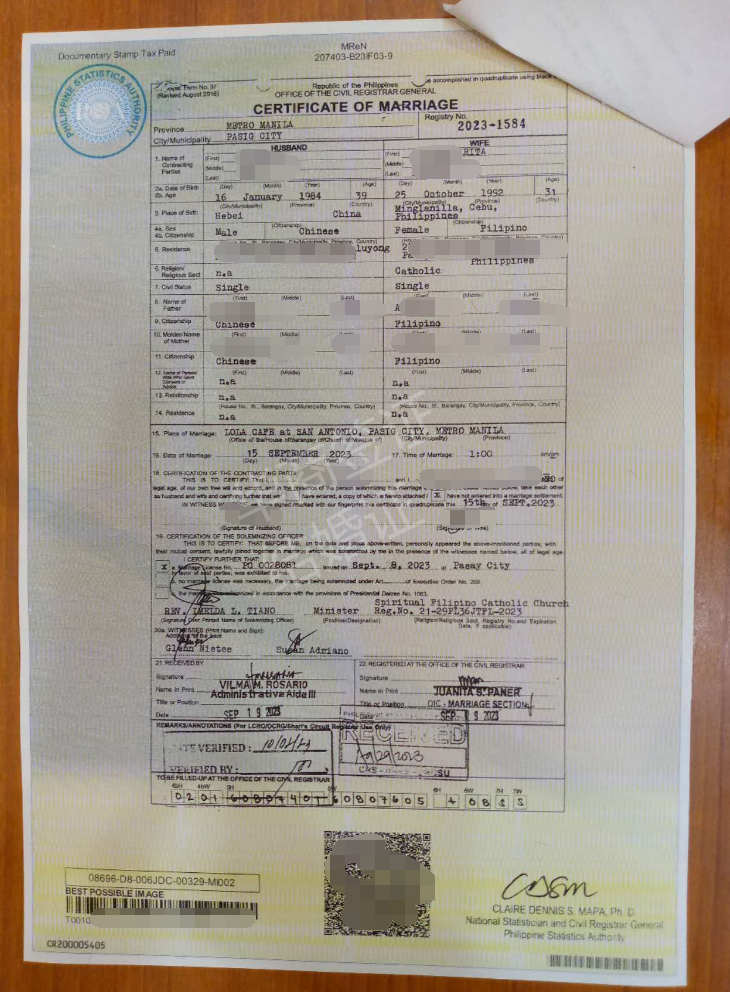 Documentary Stamp Tax Paid
MReN
207403-B23IF03-9
PHILIPPINE STATISTICS AUTHORITY
Form No. 97
(Revised August 2016)
Republic of the Philippines
be accomplished in quadruplicate using black
OFFICE OF THE CIVIL REGISTRAR GENERAL
CERTIFICATE OF MARRIAGE
Province METRO MANILA
Registry No.
2023-1584
City/Municipality PASIG CITY
HUSBAND WIFE
1. Name of Contracting Parties (First) (First) RITA
(Middle) (Middle)
(Last) (Last)
2a. Date of Birth (Day) (Month) (Year) (Age) (Day) (Month) (Year) (Age)
2b. Age 16 January 1984 39 25 October 1992 31
3. Place of Birth (City/Municipality) (Province) (Country) (City/Municipality) (Province) (Country)
Hebei China Minglanilla, Cebu, Philippines
4a. Sex
4b. Citizenship Male (Citizenship) Chinese Female (Citizenship) Filipino
5. Residence luyong Philippines
6. Religion/Religious Sect n.a Catholic
7. Civil Status Single Single
8. Name of Father (First) (Middle) (Last) (First) (Middle) (Last)
A
9. Citizenship Chinese Filipino
10. Maiden Name of Mother (First) (Middle) (Last) (First) (Middle) (Last)
11. Citizenship Chinese Filipino
12. Name of Person Who Gave Consent or Advice (First) (Middle) (Last) (First) (Middle) (Last)
n.a n.a
13. Relationship n.a n.a
14. Residence (House No., St., Barangay, City/Municipality, Province, Country) (House No., St., Barangay, City/Municipality, Province, Country)
n.a n.a
15. Place of Marriage: LOLA CAFE at SAN ANTONIO, PASIG CITY, METRO MANILA
(Office of the/House of/Barangay of/Church of/Mosque of) (City/Municipality) (Province)
16. Date of Marriage: 15 SEPTEMBER 2023 17. Time of Marriage: 1:00
(Day) (Month) (Year)
18. CERTIFICATION OF THE CONTRACTING PARTI
THIS IS TO CERTIFY: That and I,
legal age, of our own free will and accord, and in the presence of the person solemnizing this marriage take each other
as husband and wife and certifying further that we: have entered, a copy of which is hereto attached / X have not entered into a marriage settlement.
IN WITNESS signed/marked with our fingerprint this certificate in quadruplicate this 15th SEPT.2023
(Signature of Husband)
19. CERTIFICATION OF THE SOLEMNIZING OFFICER:
THIS IS TO CERTIFY: THAT BEFORE ME, on the date and place above-written, personally appeared the above-mentioned parties, with
their mutual consent, lawfully joined together in marriage which was solemnized by me in the presence of the witnesses named below, all of legal age
I CERTIFY FURTHER THAT:
X a. Marriage License No. PC 0028081 issued on Sept. 8, 2023 at Pasay City
in favor of said parties, was exhibited to me.
no marriage license was necessary, the marriage being solemnized under Art. of Executive Order No. 209.
the marriage was solemnized in accordance with the provisions of Presidential Decree No. 1083.
Spiritual Filipino Catholic Church
REV. IMELDA L. TIANO Minister Reg.No. 21-29PL36JTFL-2023
(Signature Over Printed Name of Solemnizing Officer) (Position/Designation) (Religion/Religious Sect, Registry No. and Expiration Date, if applicable)
20a. WITNESSES (Print Name and Sign):
Glenn Nietes Susan Adriano
21. RECEIVED BY 22. REGISTERED AT THE OFFICE OF THE CIVIL REGISTRAR
Signature Signature
Name in Print VILMA M. ROSARIO Name in Print JUANITA S. PANER
Title or Position Administrative Aide III Title or Position OIC - MARRIAGE SECTION
Date SEP 19 2023 Date SEP 19 2023
REMARKS/ANNOTATIONS (For LCRO/OCRG/Shari'a Circuit Registrar Use Only)
RECEIVED
DATE VERIFIED:
VERIFIED BY:
TO BE FILLED-UP AT THE OFFICE OF THE CIVIL REGISTRAR
08696-D8-006JDC-00329-MI002
BEST POSSIBLE IMAGE
T0010
CR200005405
CLAIRE DENNIS S. MAPA, Ph. D.
National Statistician and Civil Registrar General
Philippine Statistics Authority